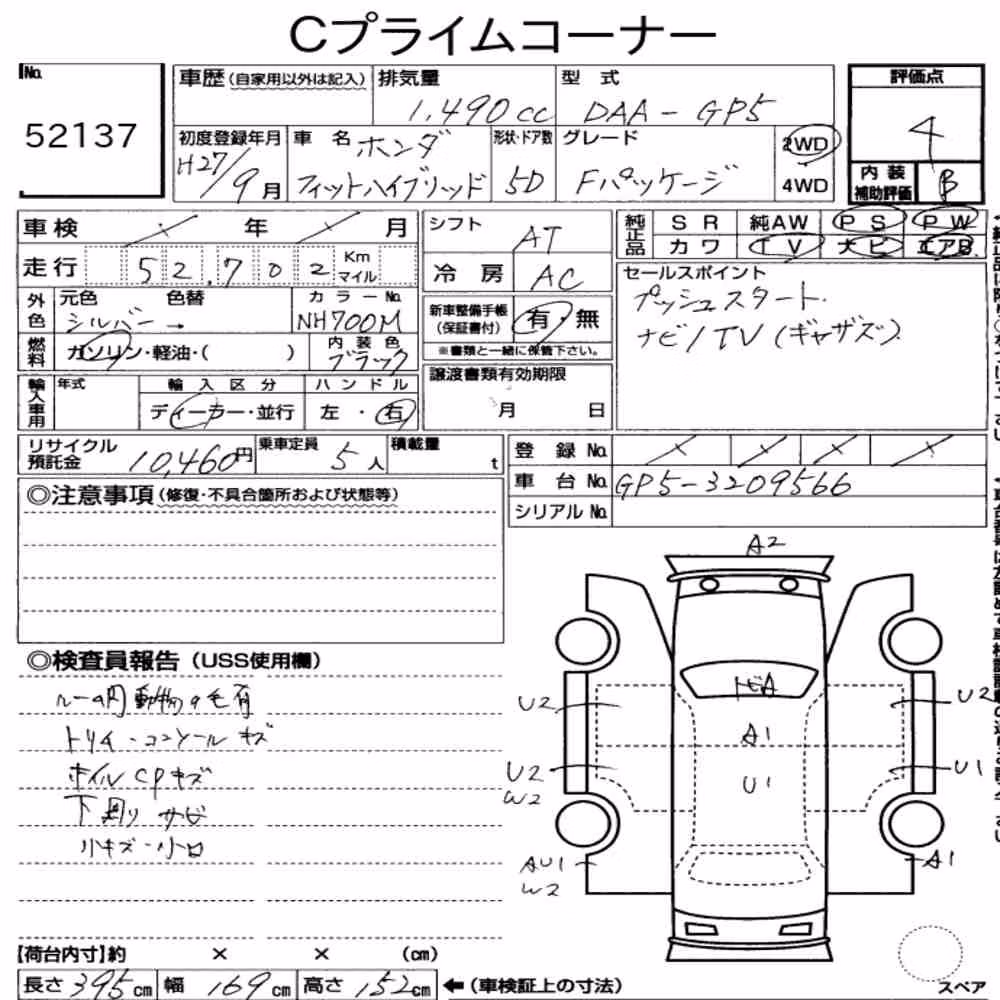 Cプライムコーナー
No.
52137
車歴(自家用以外は記入)
排気量
1,490cc
型 式
DAA-GP5
評価点
4
初度登録年月
H27/9月
車 名
ホンダ
フィットハイブリッド
形状・ドア数
5D
グレード
Fパッケージ
2WD
4WD
内装
補助評価
B
車検 / 年 / 月
走行 52,702 Km
マイル
シフト
AT
冷房
AC
純正品
SR 純AW PS PW
カワ TV ナビ エアB
外色
元色 色替
シルバー →
カラーNo.
NH700M
新車整備手帳
(保証書付)
有・無
※書類と一緒に保管下さい。
セールスポイント
プッシュスタート.
ナビ/TV(ギャザズ)
燃料
ガソリン・軽油・( )
内装色
ブラック
譲渡書類有効期限
月 日
輸入車用
年式
輸入区分
ディーラー・並行
ハンドル
左・右
リサイクル
預託金
10,460円
乗車定員
5人
積載量
t
登録No.
車台No.
GP5-3209566
シリアルNo.
◎注意事項(修復・不具合箇所および状態等)
◎検査員報告(USS使用欄)
ルーム内動物の毛有
トリム・コンソールキズ
ホイルCPキズ
下廻りサビ
小キズ・小凹
A2
トビA
U2
A1
U2
U2
W2
U1
U1
AU1
W2
A1
スペア
【荷台内寸】約 × × (cm)
長さ 395cm 幅 169cm 高さ 152cm ←(車検証上の寸法)